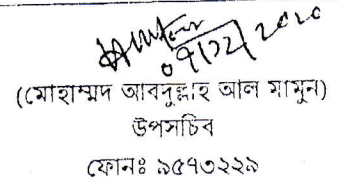 ০৭/১২/২০২০
(মোহাম্মদ আবদুল্লাহ আল মামুন)
উপসচিব
ফোনঃ ৯৫৭৩২২৯